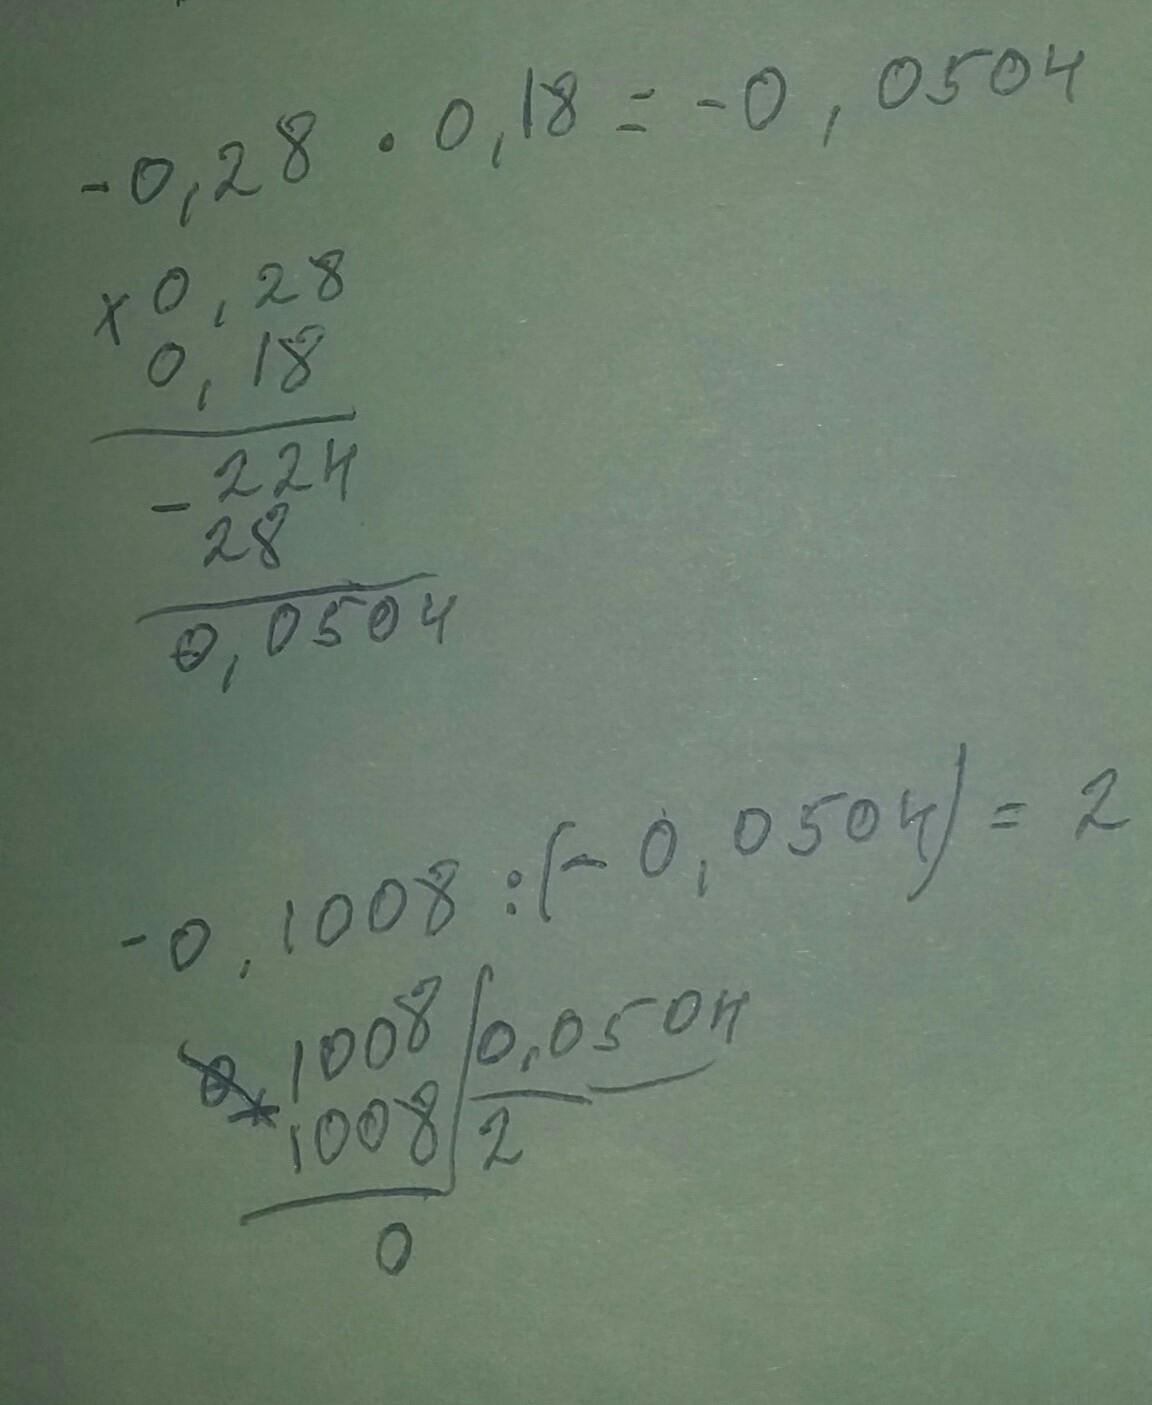 -0,28 · 0,18 = -0,0504
x 0,28
0,18
- 224
28
0,0504
-0,1008 : (-0,0504) = 2
1008 | 0,0504
1008 | 2
0